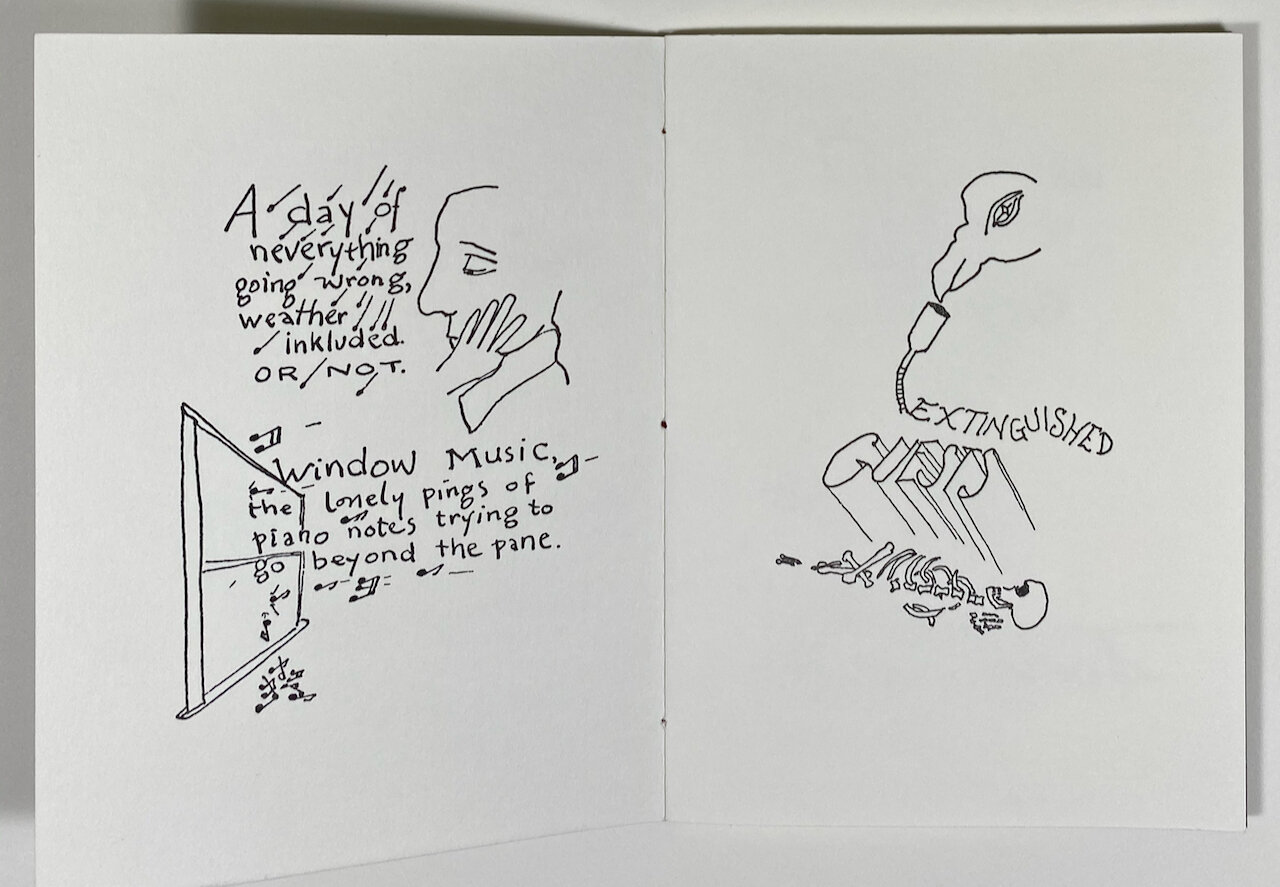 A day of
neverything
going wrong,
weather
inkluded.
OR NOT.
Window Music,
the lonely pings of
piano notes trying to
go beyond the pane.
EXTINGUISHED